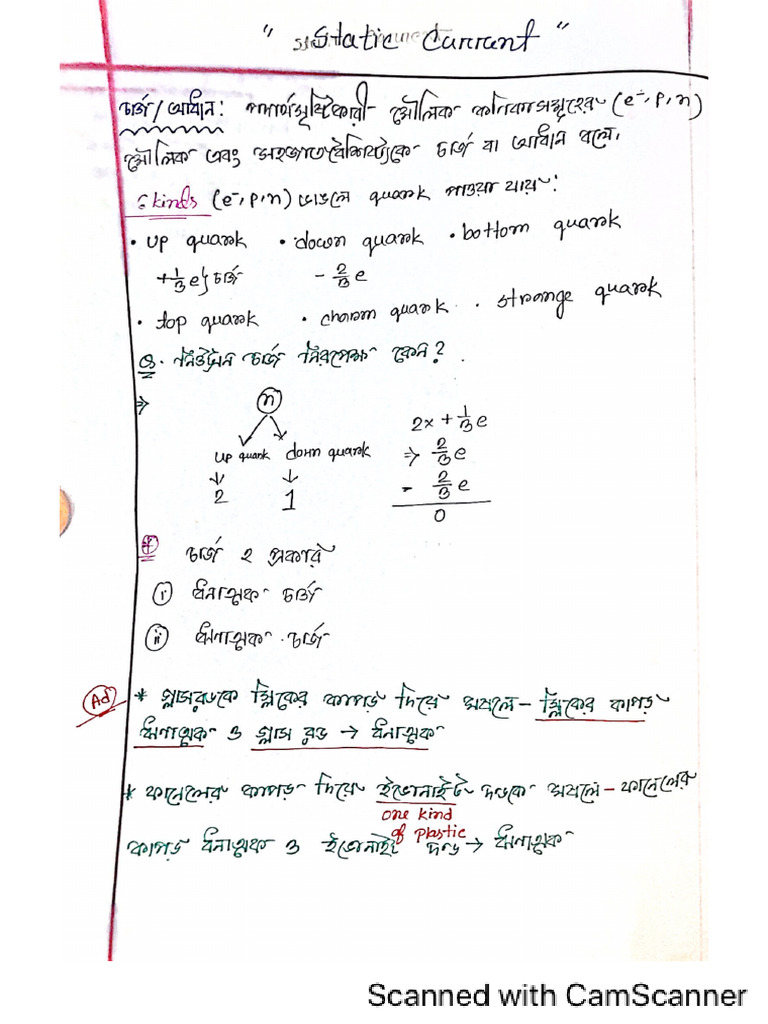 " Static Current "
চার্জ/আধান: পদার্থসৃষ্টিকারী মৌলিক কনিকাসমূহের (e⁻, p, n)
মৌলিক এবং সহজাত বৈশিষ্ট্যকে চার্জ বা আধান বলে।
6 kinds (e⁻, p, n) ভাঙলে quark পাওয়া যায়:
• up quark • down quark • bottom quark
+1/3 e} চার্জ - 2/3 e
• top quark • charm quark • strange quark
Q. নিউট্রন চার্জ নিরপেক্ষ কেন?
⇒ n
2x + 1/3 e
up quark down quark ⇒ 2/3 e
2 1 - 2/3 e
0
চার্জ ২ প্রকার
i ধনাত্মক চার্জ
ii ঋণাত্মক চার্জ
Ad * গ্লাসরডকে সিল্কের কাপড় দিয়ে ঘষলে - সিল্কের কাপড়
ঋণাত্মক ও গ্লাস রড → ধনাত্মক
* ফ্লানেলের কাপড় দিয়ে ইবোনাইট দন্ডকে ঘষলে - ফ্লানেলের
one kind of plastic
কাপড় ধনাত্মক ও ইবোনাইট দন্ড → ঋণাত্মক
Scanned with CamScanner